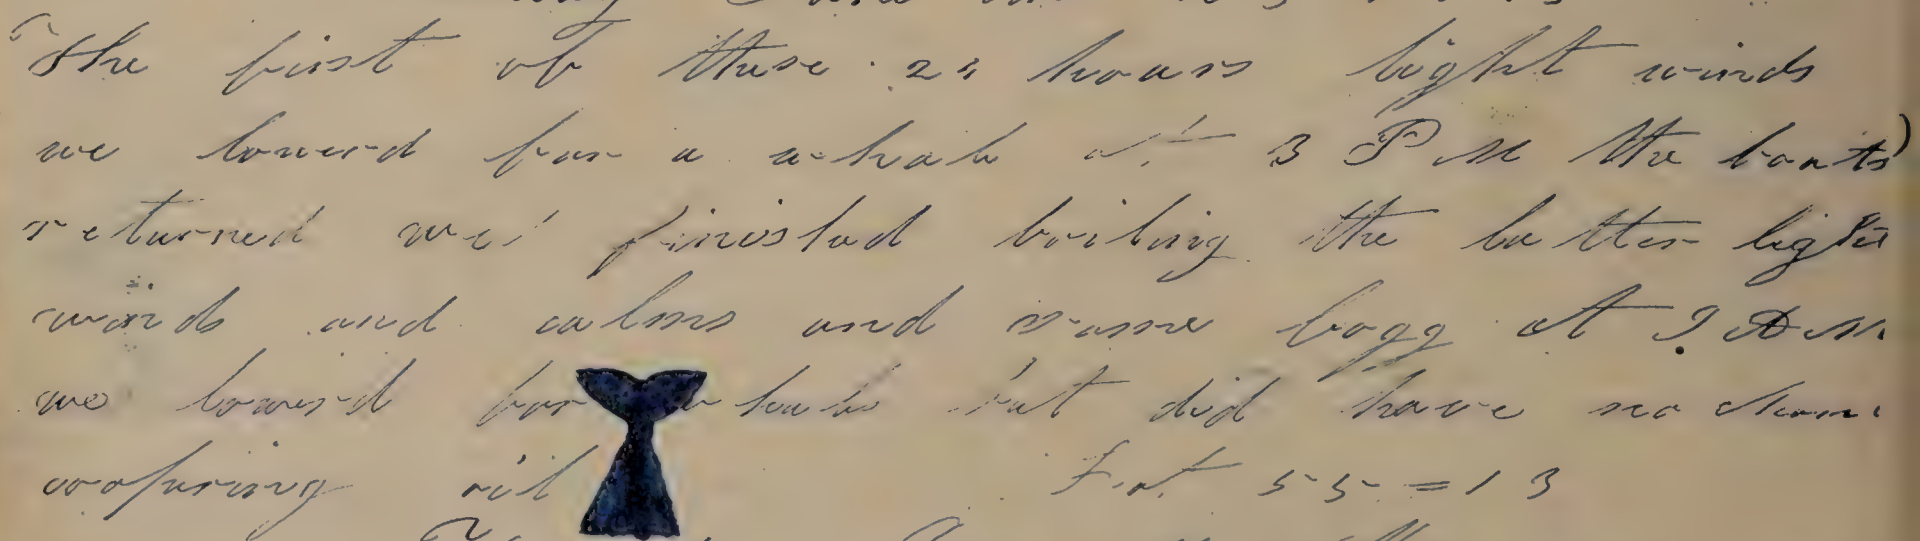 The first of these 24 hours light winds
we lowerd for a whale at 3 P M the boats
returned we finished boiling the latter light
winds and calms and some fogg at 9 A M
we lowerd for whale but did have no
coopering oil Lat 55 = 13